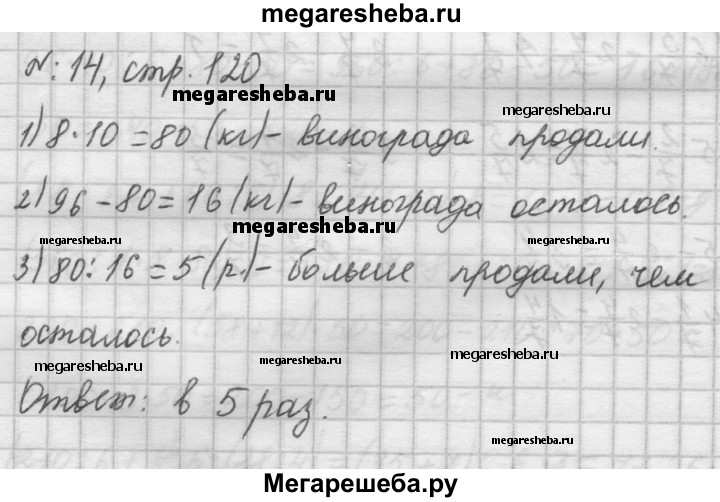 megaresheba.ru
№: 14, стр. 120
megaresheba.ru
megaresheba.ru
1) 8·10=80 (кг)- винограда продали.
2) 96-80=16 (кг)- винограда осталось.
megaresheba.ru
megaresheba.ru
megaresheba.ru
3) 80:16=5 (р.)- больше продали, чем
осталось.
megaresheba.ru
megaresheba.ru
Ответ: в 5 раз.
megaresheba.ru
Мегарешеба.ру